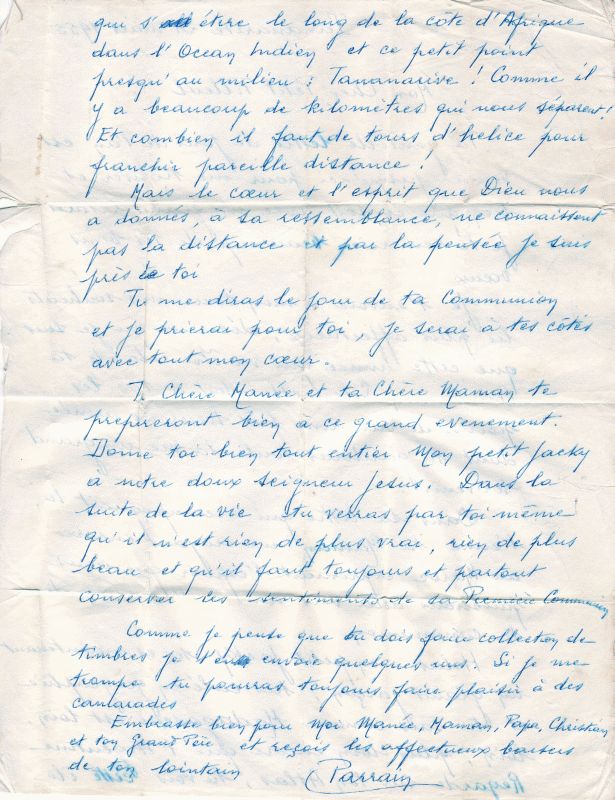 qui s' étire le long de la côte d'Afrique
dans l'Ocean Indien et ce petit point
presqu'au milieu : Tananarive ! Comme il
y a beaucoup de kilomètres qui nous séparent !
Et combien il faut de tours d'helice pour
franchir pareille distance !
Mais le cœur et l'esprit que Dieu nous
a donnés, à sa ressemblance, ne connaissent
pas la distance et par la pensée je suis
près de toi
Tu me diras le jour de ta Communion
et je prierai pour toi, je serai à tes côtés
avec tout mon cœur.
Chère Manée et ta Chère Maman te
prepareront bien à ce grand evenement.
Donne toi bien tout entier Mon petit Jacky
à notre doux seigneur Jesus. Dans la
suite de la vie tu verras par toi même
qu'il n'est rien de plus vrai, rien de plus
beau et qu'il faut toujours et partout
conserver les sentiments de sa Première Communion
Comme je pense que tu dois faire collection de
timbres je t'en envoie quelques uns. Si je me
trompe tu pourras toujours faire plaisir à des
camarades
Embrasse bien pour Moi Manée, Maman, Papa, Christian
et ton Grand Père et reçois les affectueux baisers
de ton lointain Parrain